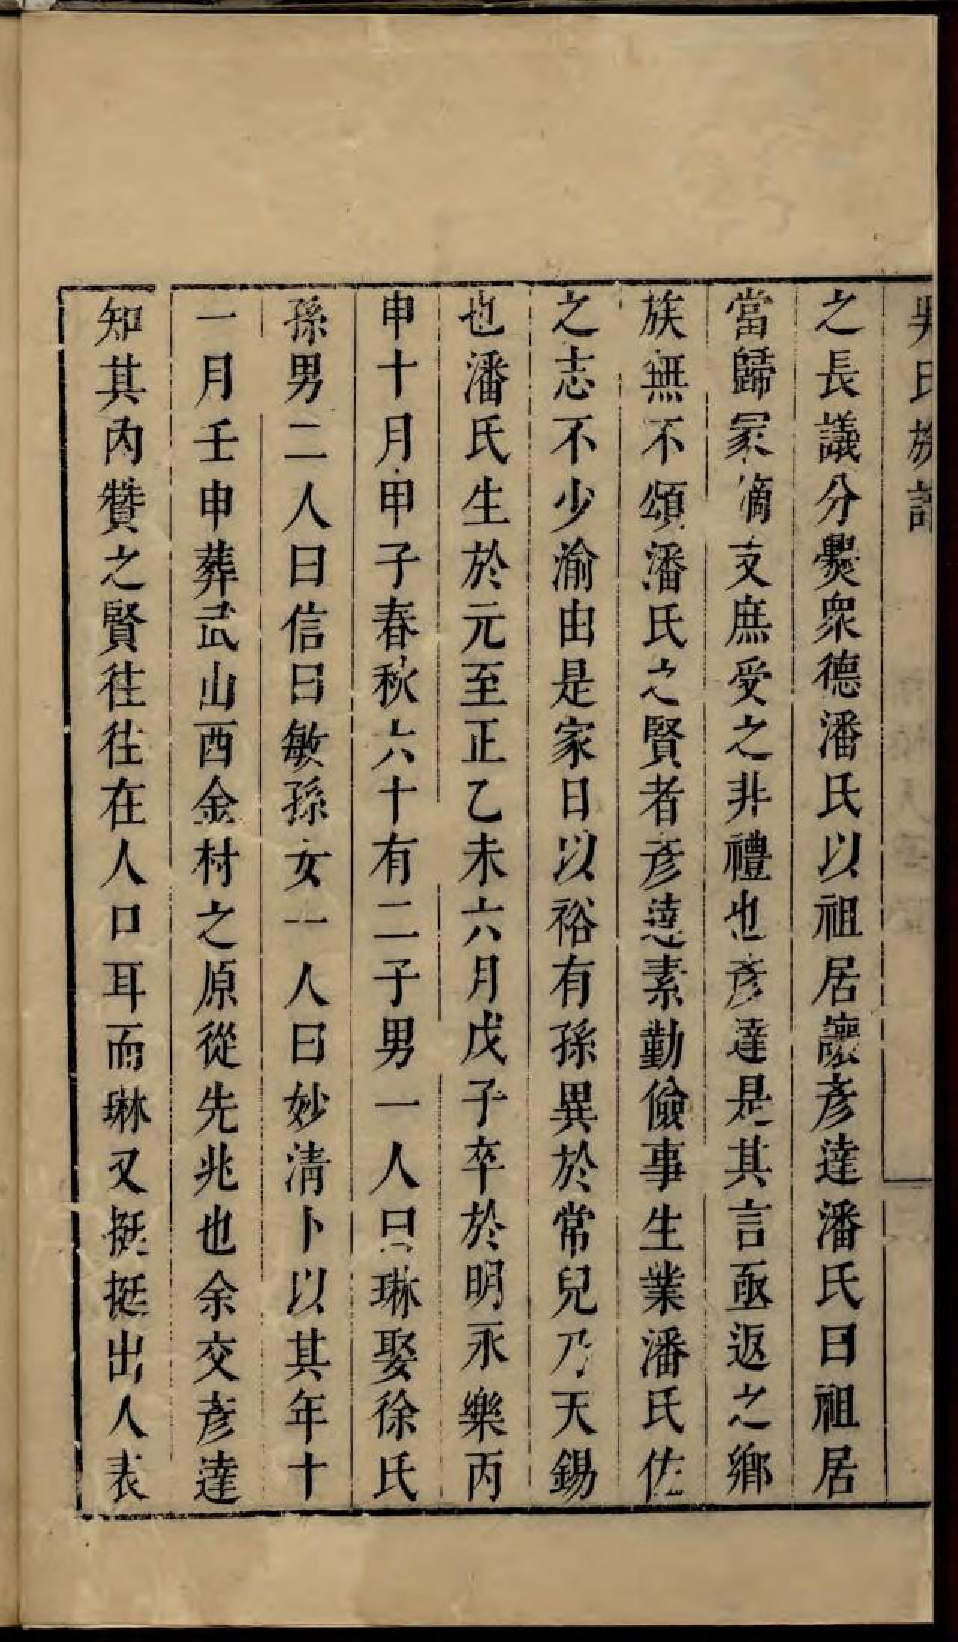 吳氏族譜
之長議分爨衆德潘氏以祖居讓彥達潘氏曰祖居
當歸冢嫡支庶受之非禮也彥達是其言亟返之鄉
族無不頌潘氏之賢者彥達素勤儉事生業潘氏佐
之志不少渝由是家日以裕有孫異於常兒乃天錫
也潘氏生於元至正乙未六月戊子卒於明永樂丙
申十月甲子春秋六十有二子男一人曰琳娶徐氏
孫男二人曰信曰敏孫女一人曰妙清卜以其年十
一月壬申葬武山西金村之原從先兆也余交彥達
知其內贊之賢徃徃在人口耳而琳又挺挺出人表